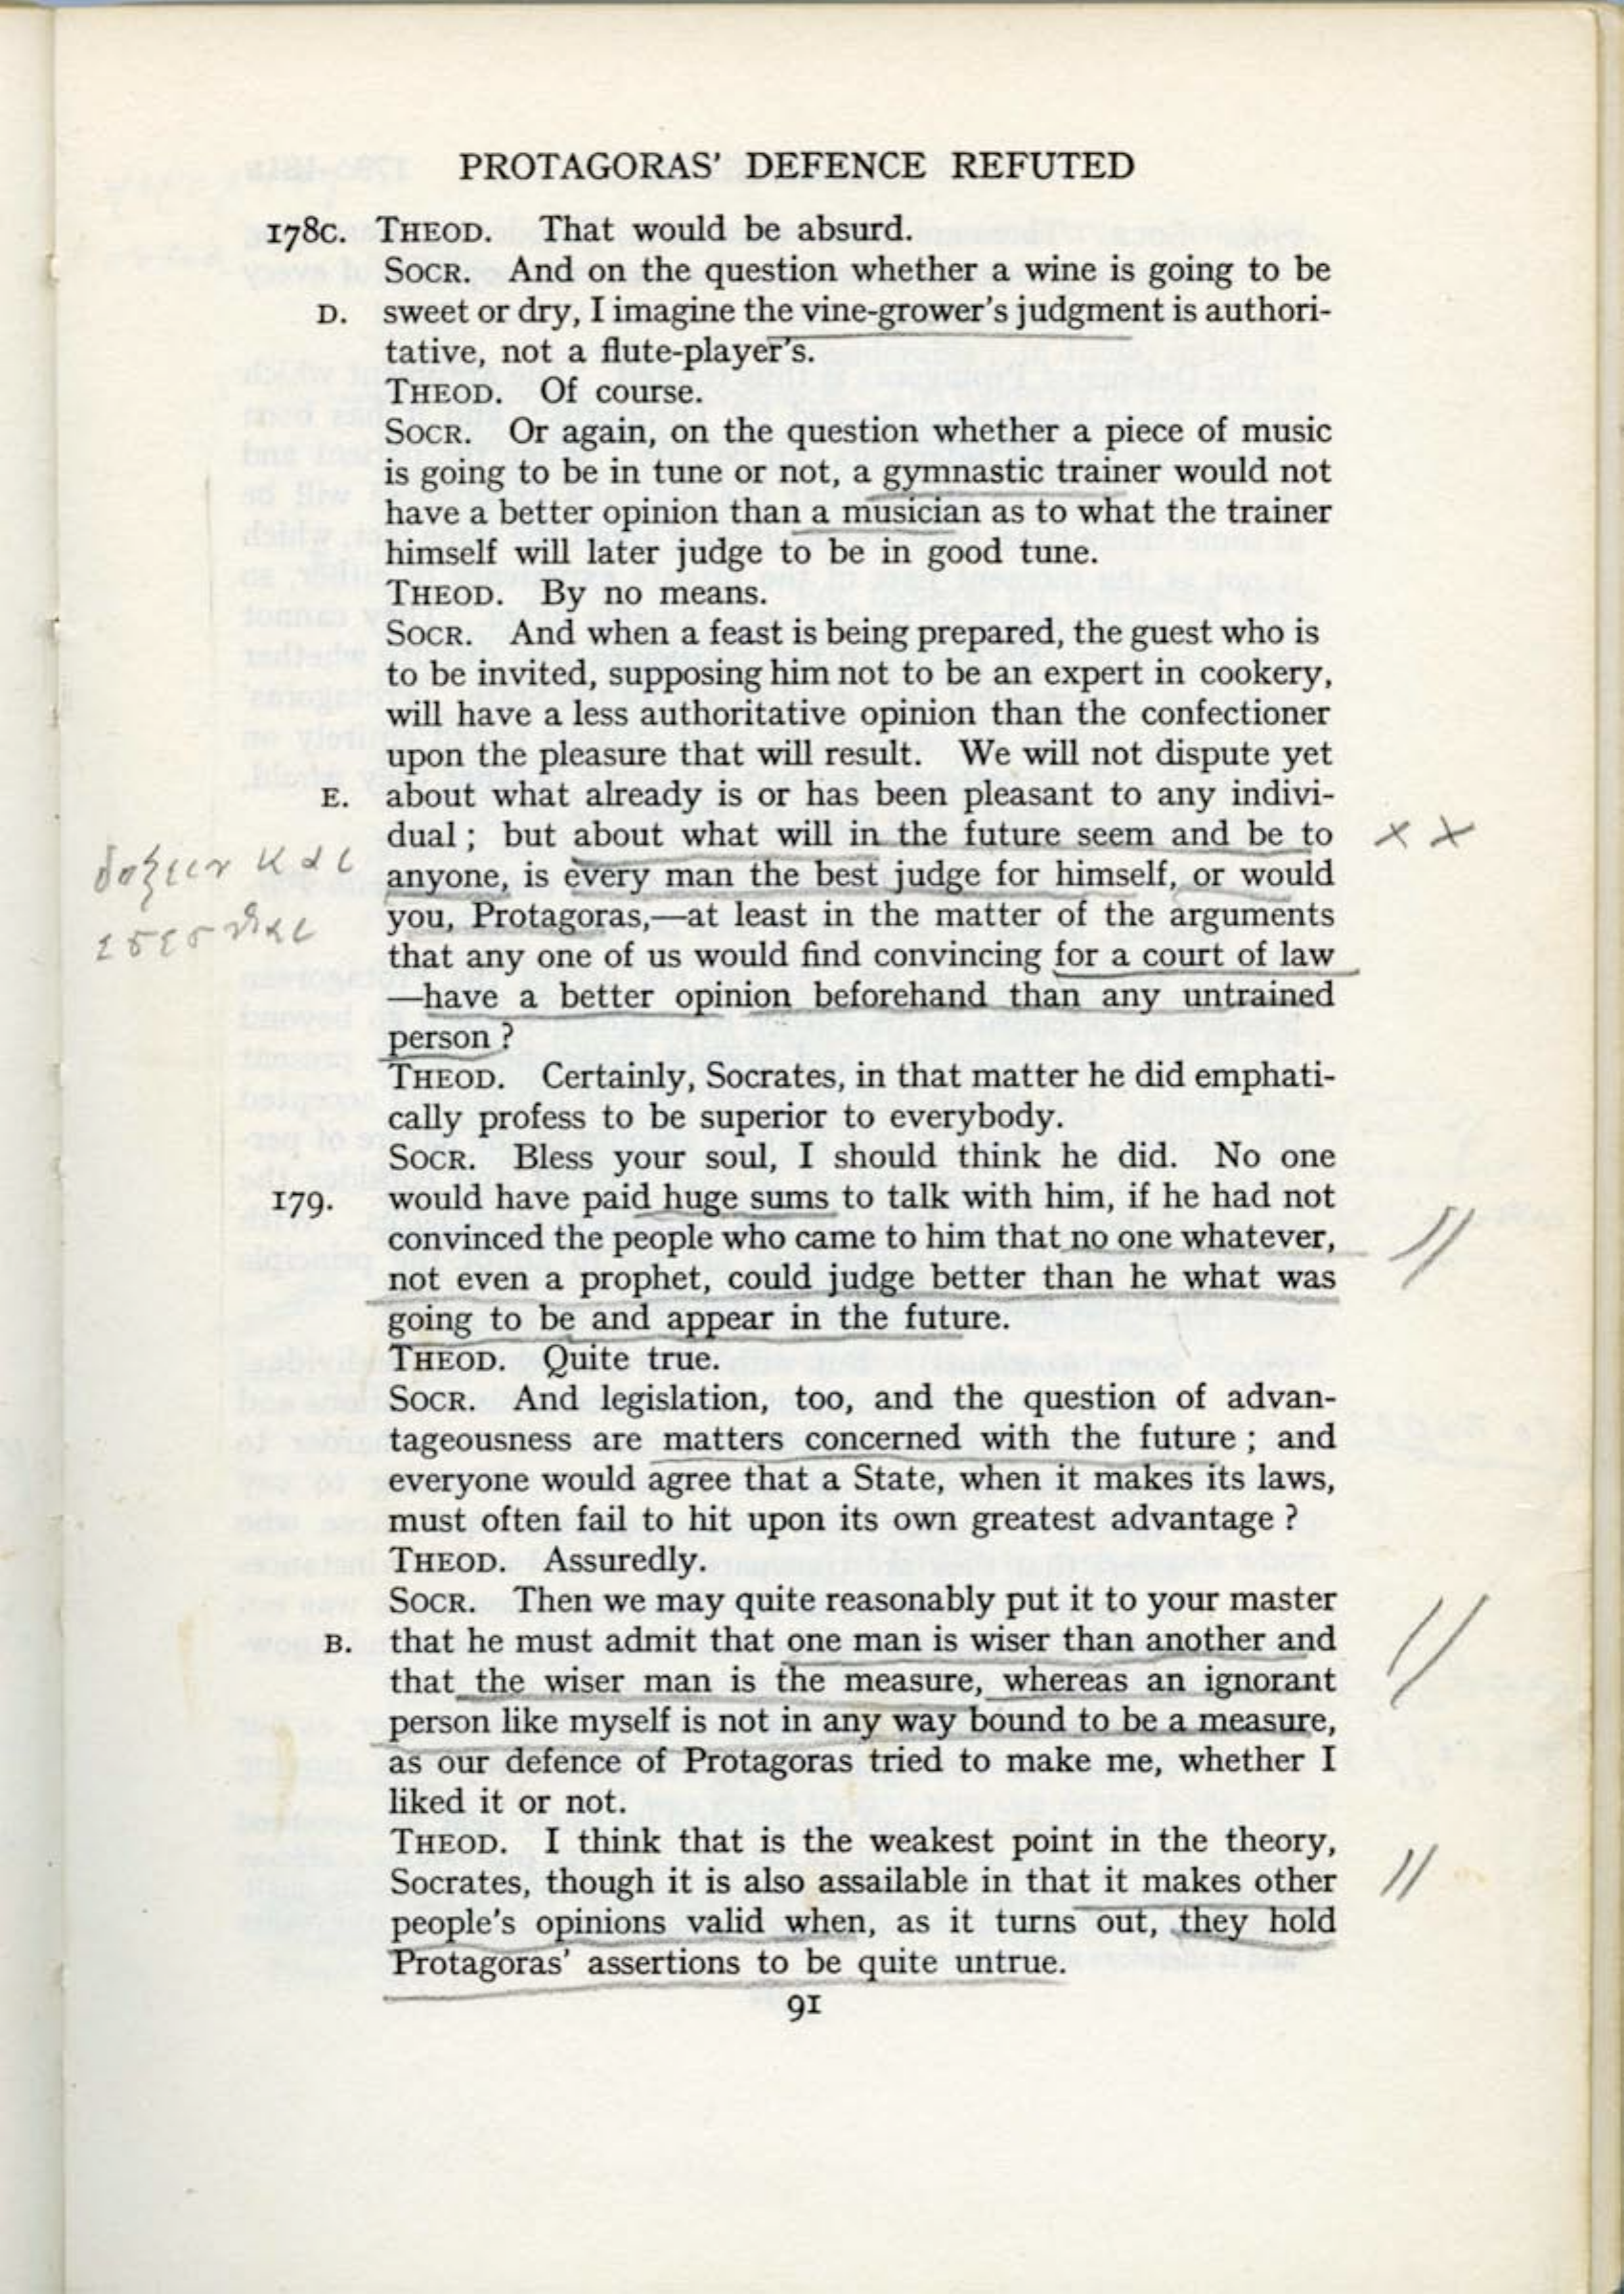 PROTAGORAS' DEFENCE REFUTED
178c. THEOD. That would be absurd.
SOCR. And on the question whether a wine is going to be
D. sweet or dry, I imagine the vine-grower's judgment is authori-
tative, not a flute-player's.
THEOD. Of course.
SOCR. Or again, on the question whether a piece of music
is going to be in tune or not, a gymnastic trainer would not
have a better opinion than a musician as to what the trainer
himself will later judge to be in good tune.
THEOD. By no means.
SOCR. And when a feast is being prepared, the guest who is
to be invited, supposing him not to be an expert in cookery,
will have a less authoritative opinion than the confectioner
upon the pleasure that will result. We will not dispute yet
E. about what already is or has been pleasant to any indivi-
dual ; but about what will in the future seem and be to x x
δοξειν και
anyone, is every man the best judge for himself, or would
εσεσθαι
you, Protagoras,—at least in the matter of the arguments
that any one of us would find convincing for a court of law
—have a better opinion beforehand than any untrained
person ?
THEOD. Certainly, Socrates, in that matter he did emphati-
cally profess to be superior to everybody.
SOCR. Bless your soul, I should think he did. No one
179. would have paid huge sums to talk with him, if he had not
convinced the people who came to him that no one whatever,
not even a prophet, could judge better than he what was
going to be and appear in the future.
THEOD. Quite true.
SOCR. And legislation, too, and the question of advan-
tageousness are matters concerned with the future ; and
everyone would agree that a State, when it makes its laws,
must often fail to hit upon its own greatest advantage ?
THEOD. Assuredly.
SOCR. Then we may quite reasonably put it to your master
B. that he must admit that one man is wiser than another and
that the wiser man is the measure, whereas an ignorant
person like myself is not in any way bound to be a measure,
as our defence of Protagoras tried to make me, whether I
liked it or not.
THEOD. I think that is the weakest point in the theory,
Socrates, though it is also assailable in that it makes other
people's opinions valid when, as it turns out, they hold
Protagoras' assertions to be quite untrue.
91